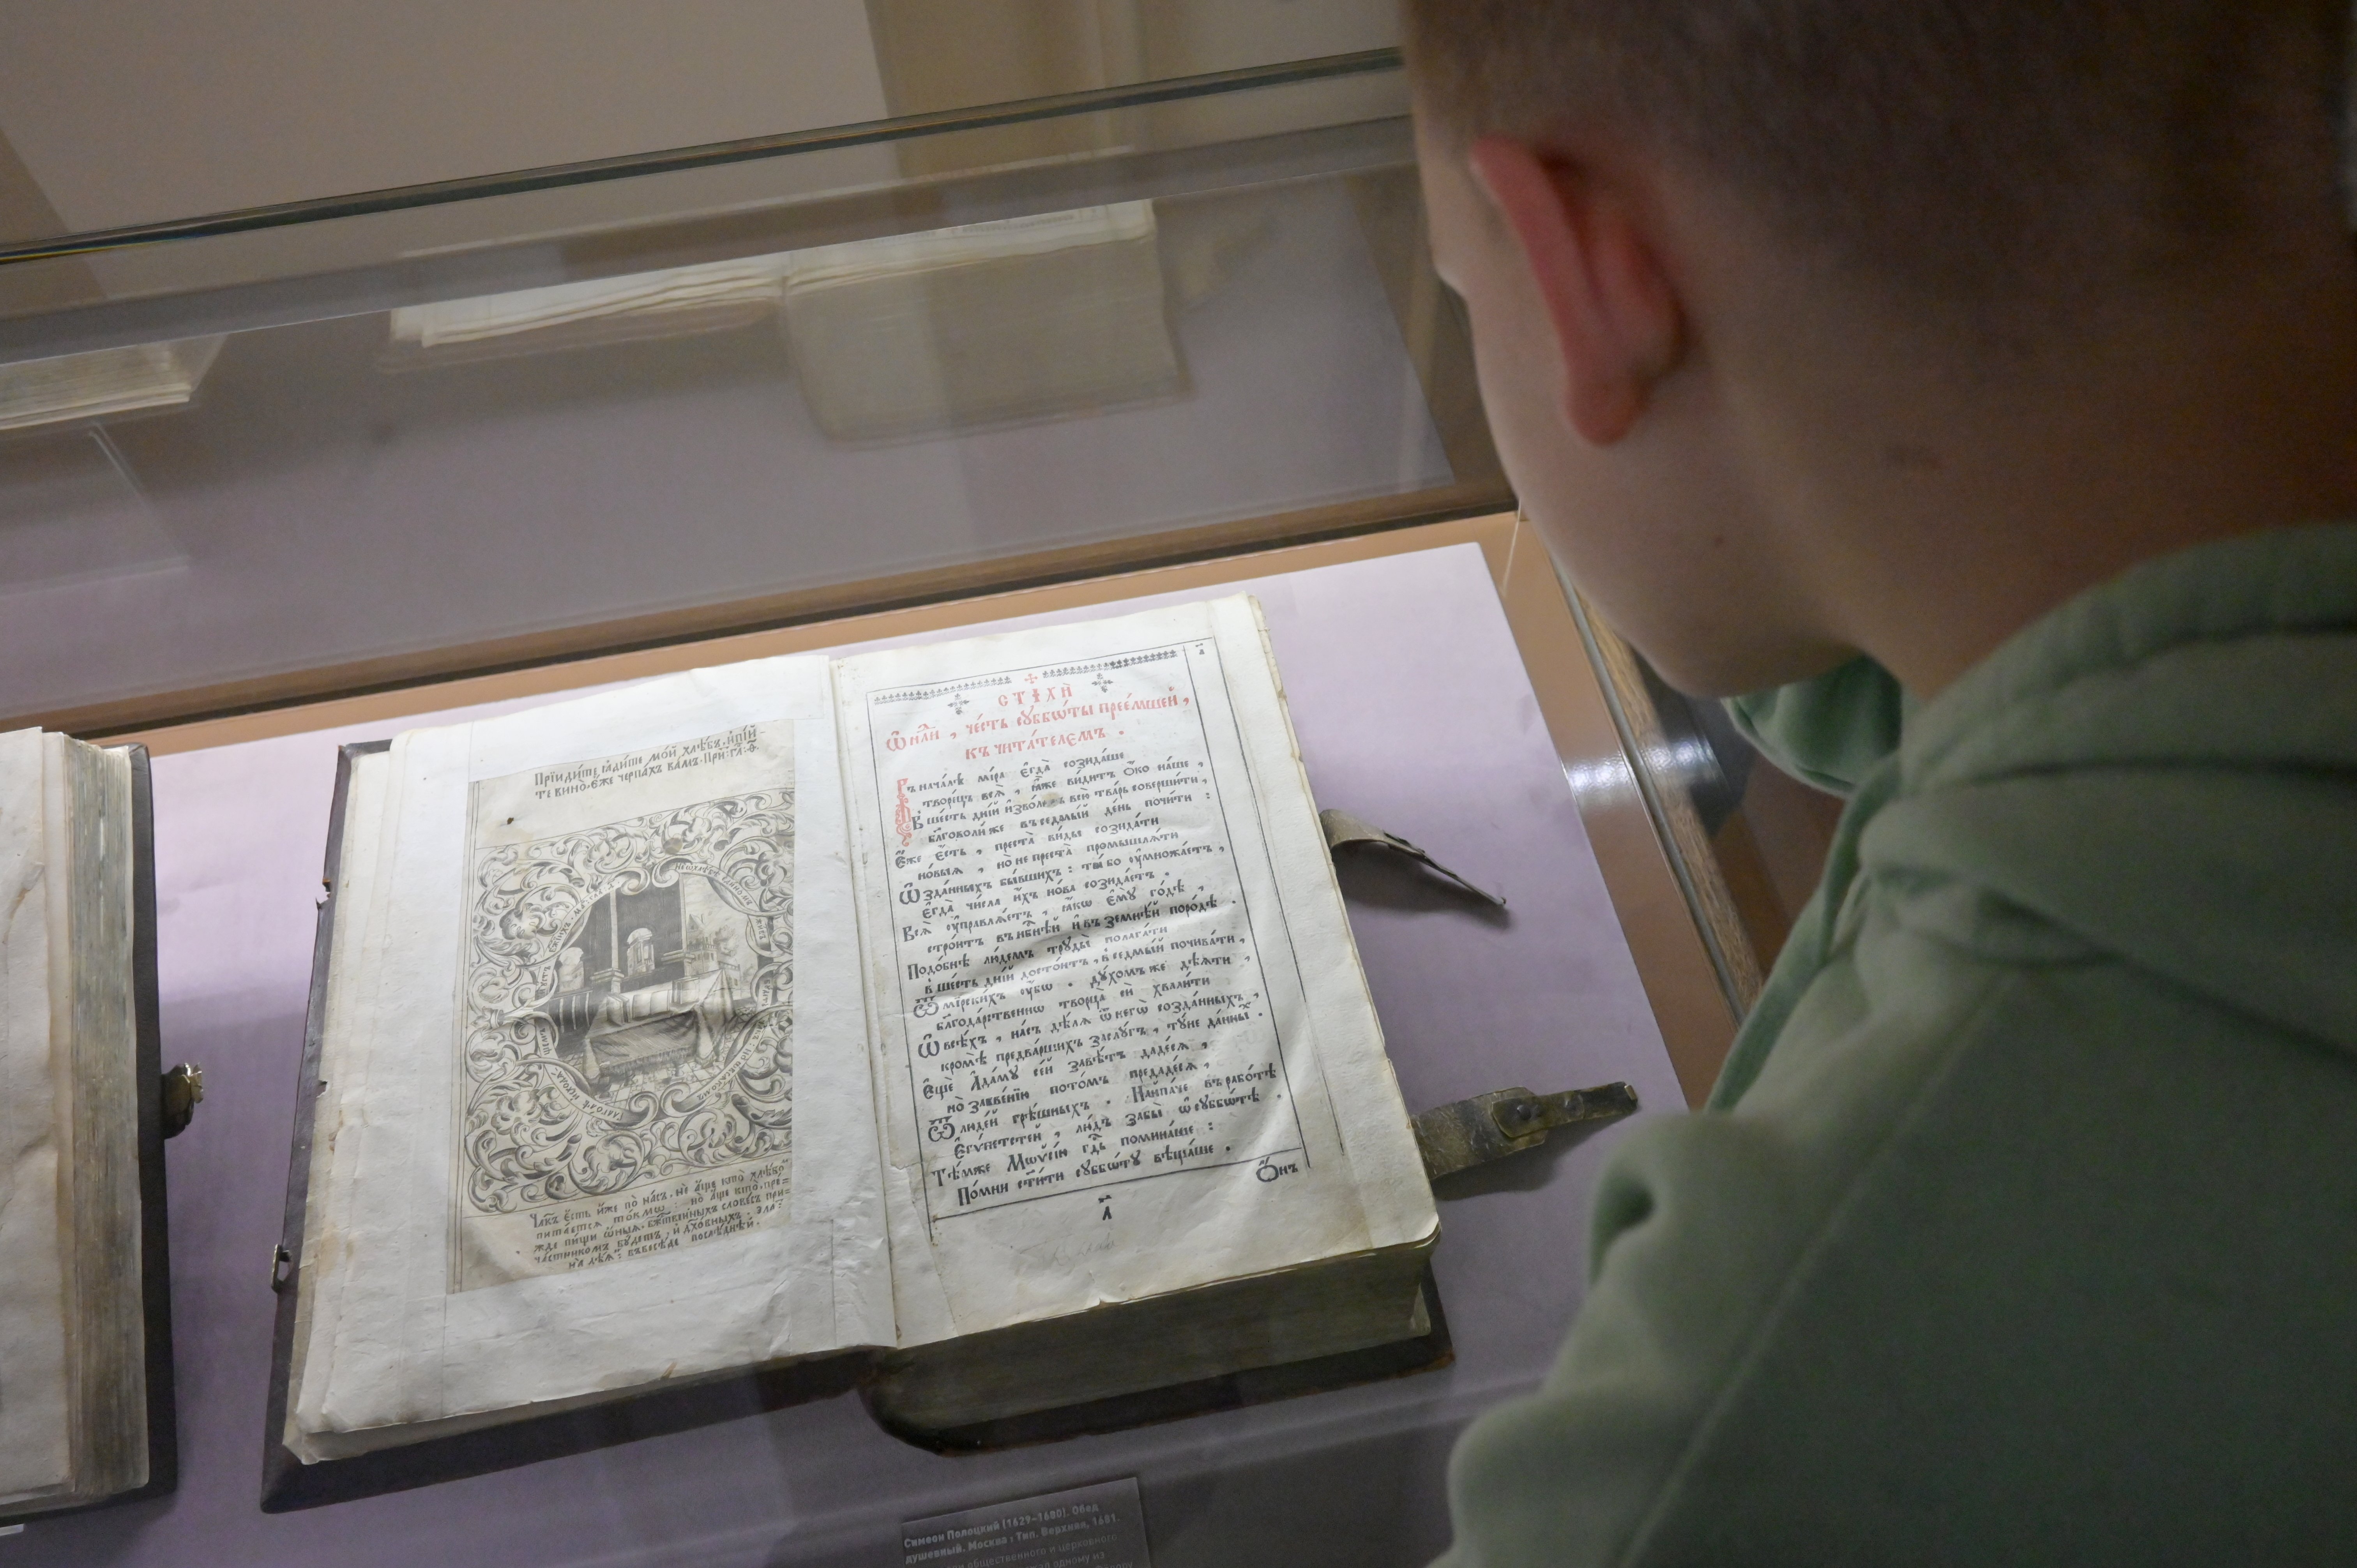 Прїиди́те ꙗ҆ди́те мо́й хлѣ́бъ, и҆пі́й-
те вино̀, є҆́же черпа́хъ ва́мъ. При: гл: ѳ҃.
Члкъ є҆́сть и҆́же по на́съ, не а҆́ще кто̀ хлѣ́бо
пита́етсѧ то́кмѡ: но̀ а҆́ще кто̀ пре-
жде пи́щи ѻ҆́ныѧ, бж҃тве́нныхъ слове́съ при-
ча́стникомъ бу́детъ, и҆ дх҃о́вныхъ.
СТІХѝ
Ѿ нл҃и, че́сть суббѡ́ты прее́мшей,
къ чита́телемъ.
Въ нача́лѣ мі́ра є҆гда̀ созида́ше
творе́цъ всѧ̑, ꙗ҆̀же ви́дитъ ѻ҆́ко на́ше,
В ше́сть дні́й и҆зво́ли всю̀ тва́рь соверши́ти,
бл҃говоли́ же въ седмы́й де́нь почи́ти:
Є҆́же є҆́сть, преста̀ ви́ды созида́ти
но́выѧ, но̀ не преста̀ промышлѧ́ти
Ѡ҆ зда́нныхъ бы́вшихъ: ты́ѧ бо ᲂу҆множа́етъ,
є҆гда̀ числа̀ и҆́хъ но́ва созида́етъ.
Всѧ̑ ᲂу҆правлѧ́етъ, ꙗ҆́кѡ є҆мꙋ̀ го́дѣ,
стро́итъ въ нб҃нѣй и҆ въ земнѣ́й поро́дѣ.
Подо́бнѣ лю́демъ трꙋды̀ полага́ти
в ше́сть дні́й досто́итъ, в седмы́й почива́ти,
Ѿ мірски́хъ ᲂу҆́бѡ. дꙋ́хомъ же дѣ́ѧти,
бл҃года́рственнѡ творца̀ си́ хвали́ти
Ѡ҆ всѣ́хъ, на́съ дѣ́лѧ ѿ негѡ̀ созда́нныхъ,
кромѣ̀ предва́ршихъ заслꙋ́гъ, тꙋ́не да́нны́хъ.
Є҆щѐ А҆да́мꙋ се́й завѣ́тъ даде́сѧ,
но̀ забве́нїю пото́мъ предаде́сѧ,
Ѿ люде́й грѣ́шныхъ. Наипа́че въ рабо́тѣ
Є҆гѵ́петстей, лю́дъ забы̀ ѡ҆ сꙋббѡ́тѣ.
Тѣ́мже Мѡѷсі́ю гд҃ь помина́ше:
По́мни ст҃и́ти сꙋббѡ́тꙋ вѣща́ше.
Ѻ҆́нъ
Симеон Полоцкий (1629–1680). Обед
душевный. Москва : Тип. Верхняя, 1681.
общественного и церковного
одному из